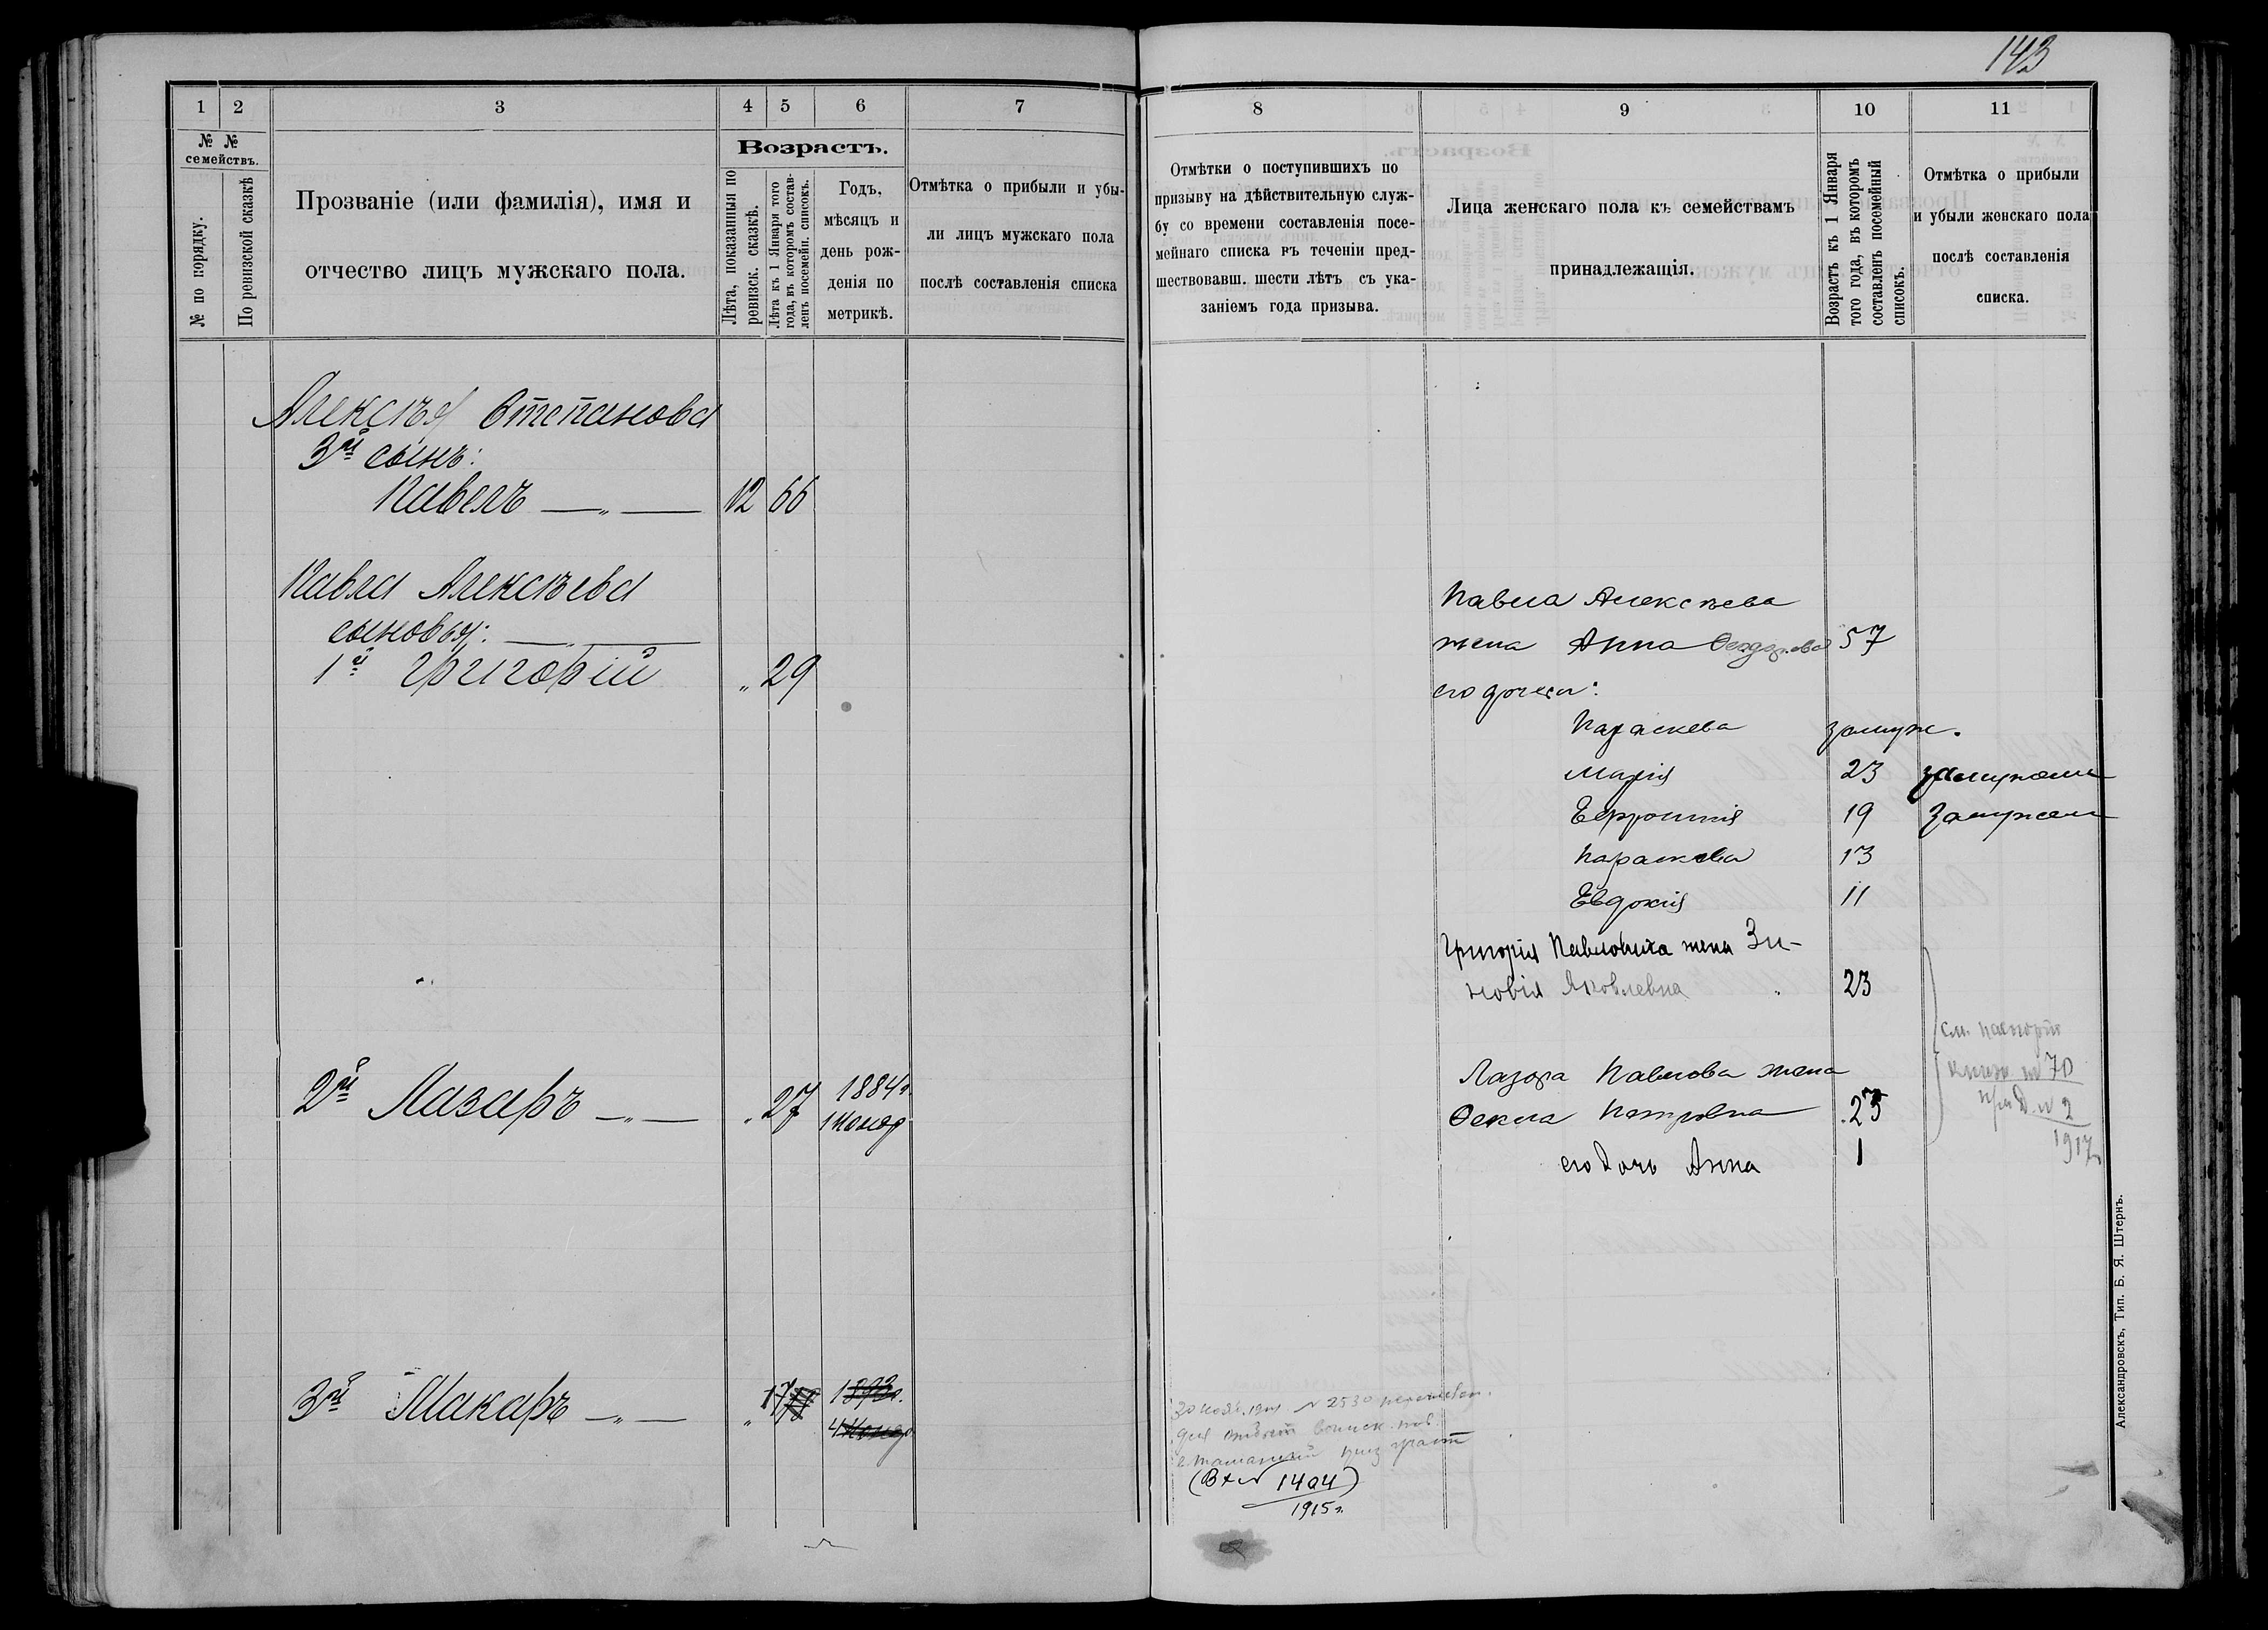 143
1
2
3
4
5
6
7
№ №
семействъ.
№ по порядку.
По ревизской сказкѣ
Прозваніе (или фамилія), имя и
отчество лицъ мужскаго пола.
Возрастъ.
Лѣта, показанныя по
ревизск. сказкѣ.
Лѣта къ 1 Января того
года, въ которомъ состав-
ленъ посемейн. списокъ.
Годъ,
мѣсяцъ и
день рож-
денія по
метрикѣ.
Отмѣтка о прибыли и убы-
ли лицъ мужскаго пола
послѣ составленія списка
Алексѣя Степанова
3й сынъ:
Павелъ —„— 12 66
Павла Алексѣева
сыновья:
1й Григорій „ 29
2й Лазарь —„— „ 27 1884г.
1 Нояб
3й Макаръ —„— „ 17 1893г.
4
8
9
10
11
Отмѣтки о поступившихъ по
призыву на дѣйствительную служ-
бу со времени составленія посе-
мейнаго списка въ теченіи пред-
шествовавш. шести лѣтъ съ ука-
заніемъ года призыва.
Лица женскаго пола къ семействамъ
принадлежащія.
Возрастъ къ 1 Января
того года, въ которомъ
составленъ посемейный
списокъ.
Отмѣтка о прибыли
и убыли женскаго пола
послѣ составленія
списка.
Павла Алексѣева
жена Анна Феодорова 57
его дочери:
Параскева замуж.
Марія 23 замужем
Ефросинія 19 Замужем
Параскева 13
Евдокія 11
Григорія Павловича жена Зи-
новія Яковлевна 23
Лазаря Павлова жена
Ѳекла Петровна 25
его дочь Анна 1
см. паспорт
книж № 70
№ 2
1917г
№ 2530
для воинск. пов.
(Вх № 1404)
1915г.
Александровскъ, Тип. Б. Я. Штернъ.